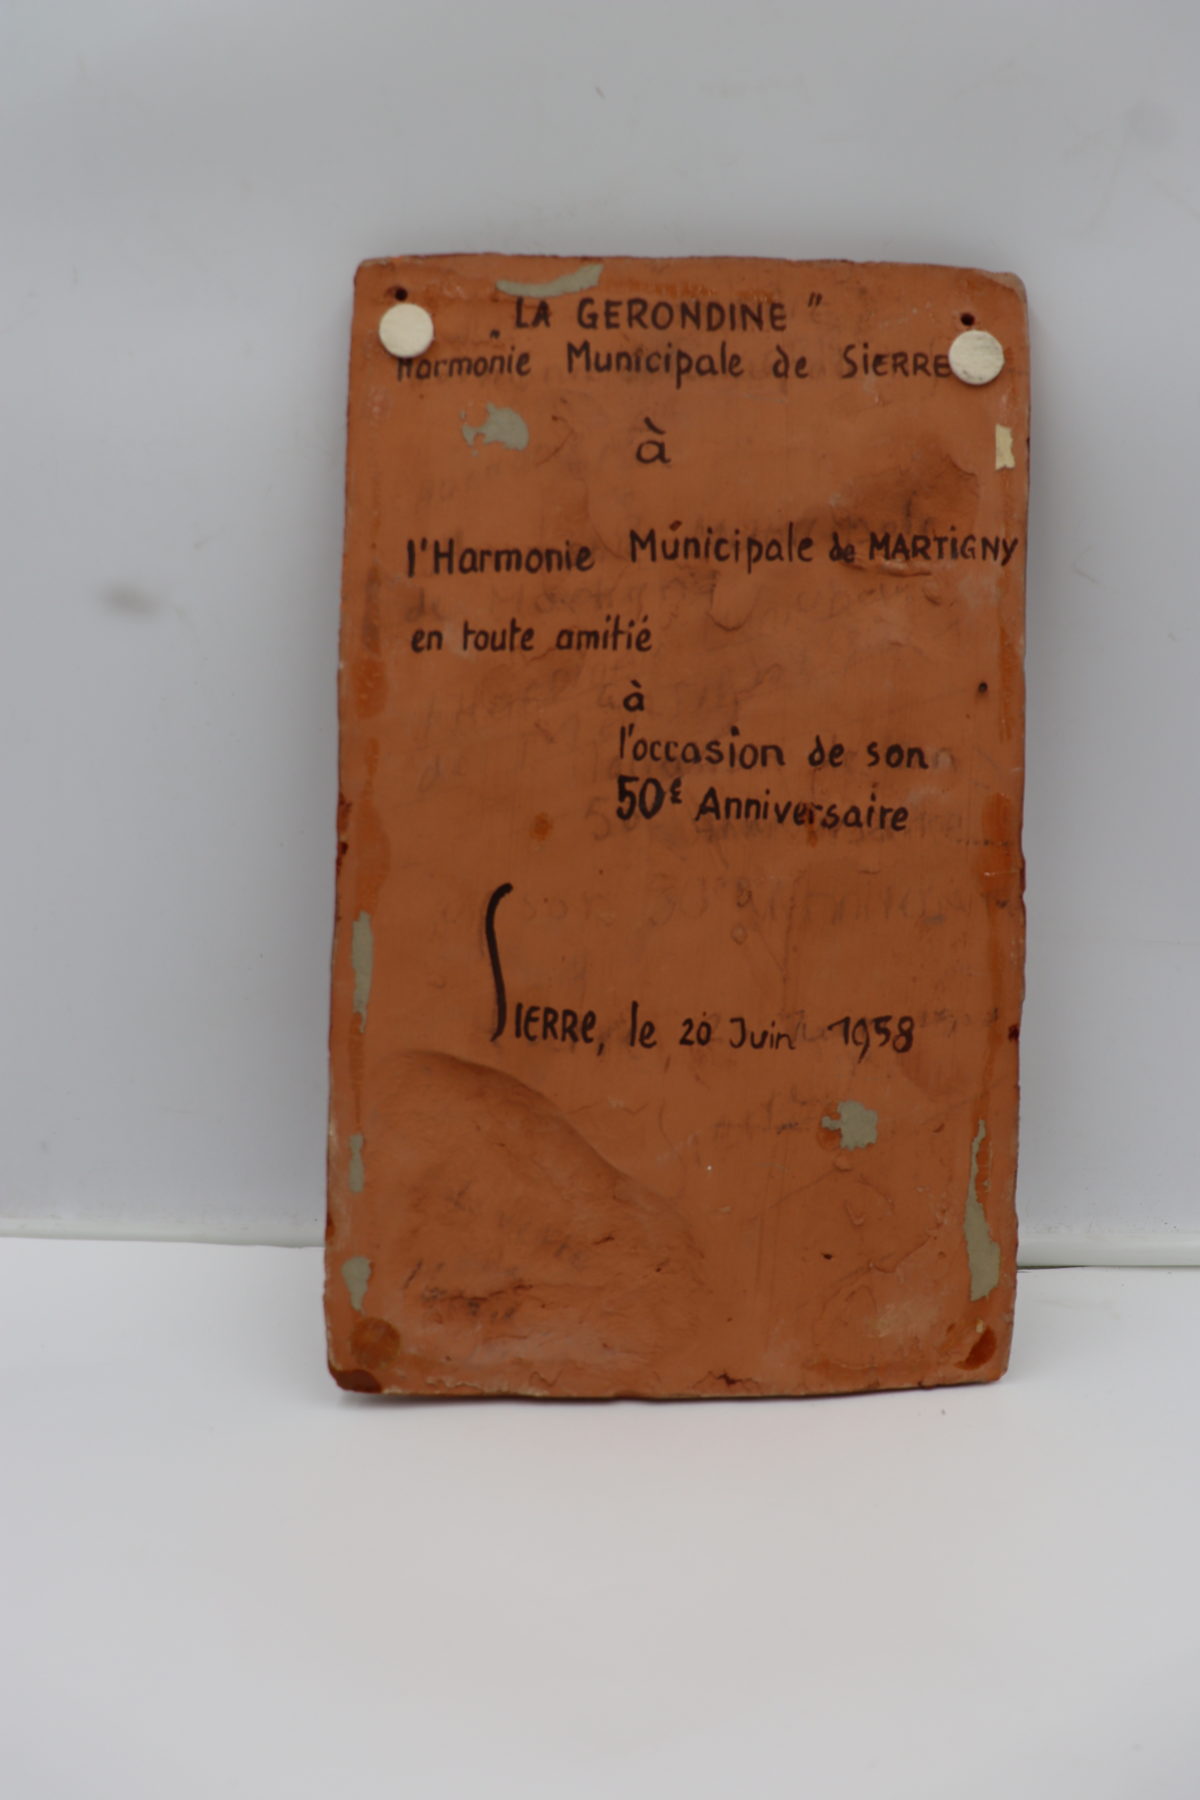 „LA GERONDINE"
Harmonie Municipale de SiERRE
à
l'Harmonie Municipale de MARTiGNY
en toute amitié
à
l'occasion de son
50e Anniversaire
SIERRe, le 20 Juin 1958